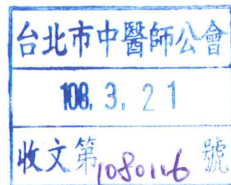 台北市中醫師公會
108. 3. 21
收文第1080116號